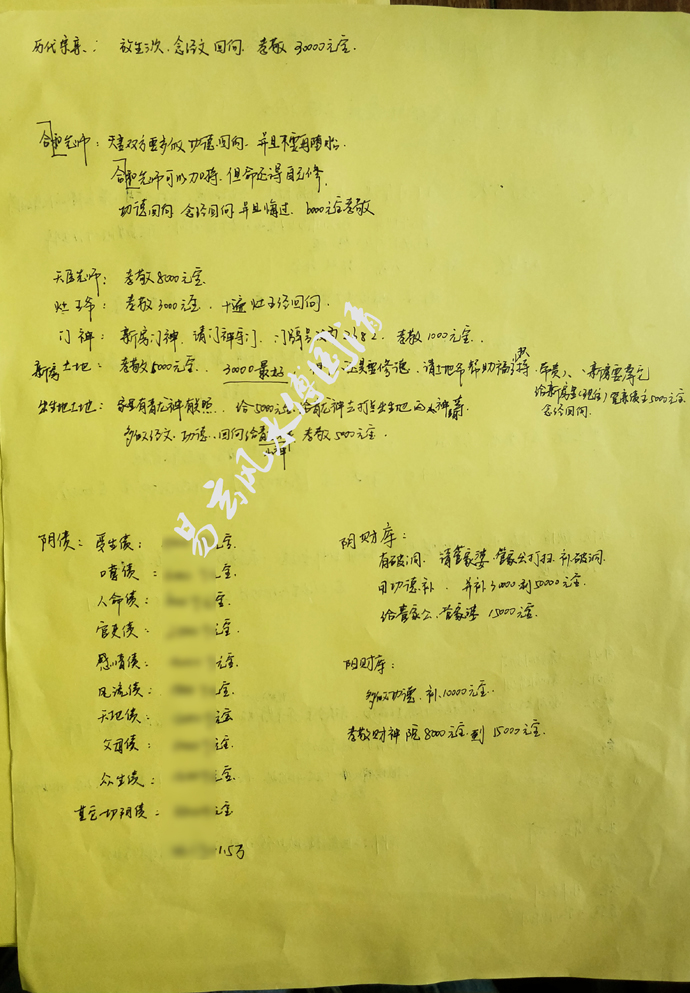 历代宗亲: 放生3次、念经文回向. 孝敬30000元宝.
合和先师: 夫妻双方要多做功德回向. 并且不要再堕胎.
合和先师可以加持. 但命还得自己修.
功德回向 念经回向 并且悔过. 元宝孝敬
天医先师: 孝敬8000元宝.
灶王爷: 孝敬3000元宝. 十遍灶王经回向.
门神: 新房门神. 请门神守门. 门牌号 2382. 孝敬1000元宝.
新房土地: 孝敬5000元宝. 30000最好 还要修德. 请土地爷帮助 新房要
给新房 5000元宝
念经回向.
出生地土地: 家里有青龙神 给5000元宝 给青龙神去打点出生地
多做经文. 功德. 回向给 孝敬5000元宝.
阴债: 受生债: 元宝.
口债: 元宝.
人命债: 元宝
官吏债: 元宝
感情债: 元宝.
风流债: 元宝.
天地债: 元宝
父母债: 元宝
众生债: 元宝
其它一切阴债: 元宝
1.5万
阴财库:
有破洞. 请管家婆. 管家公打扫. 补破洞.
用功德补. 并补30000到50000元宝.
给管家公. 管家婆 15000元宝.
阳财库:
多做功德. 补10000元宝.
孝敬财神院8000元宝到15000元宝.
易玄风水傅国清